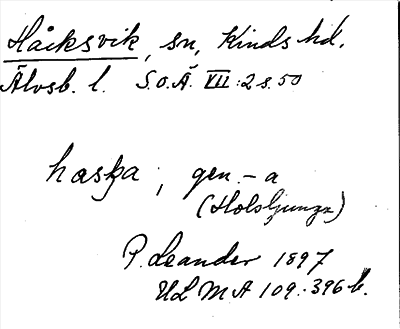 Håcksvik, sn, Kinds hd.
Älvsb. l. S.O.Ä. VII:2 s. 50
haska; gen. -a
(Holsljunga)
P. Leander 1897
ULMA 109:396 b.